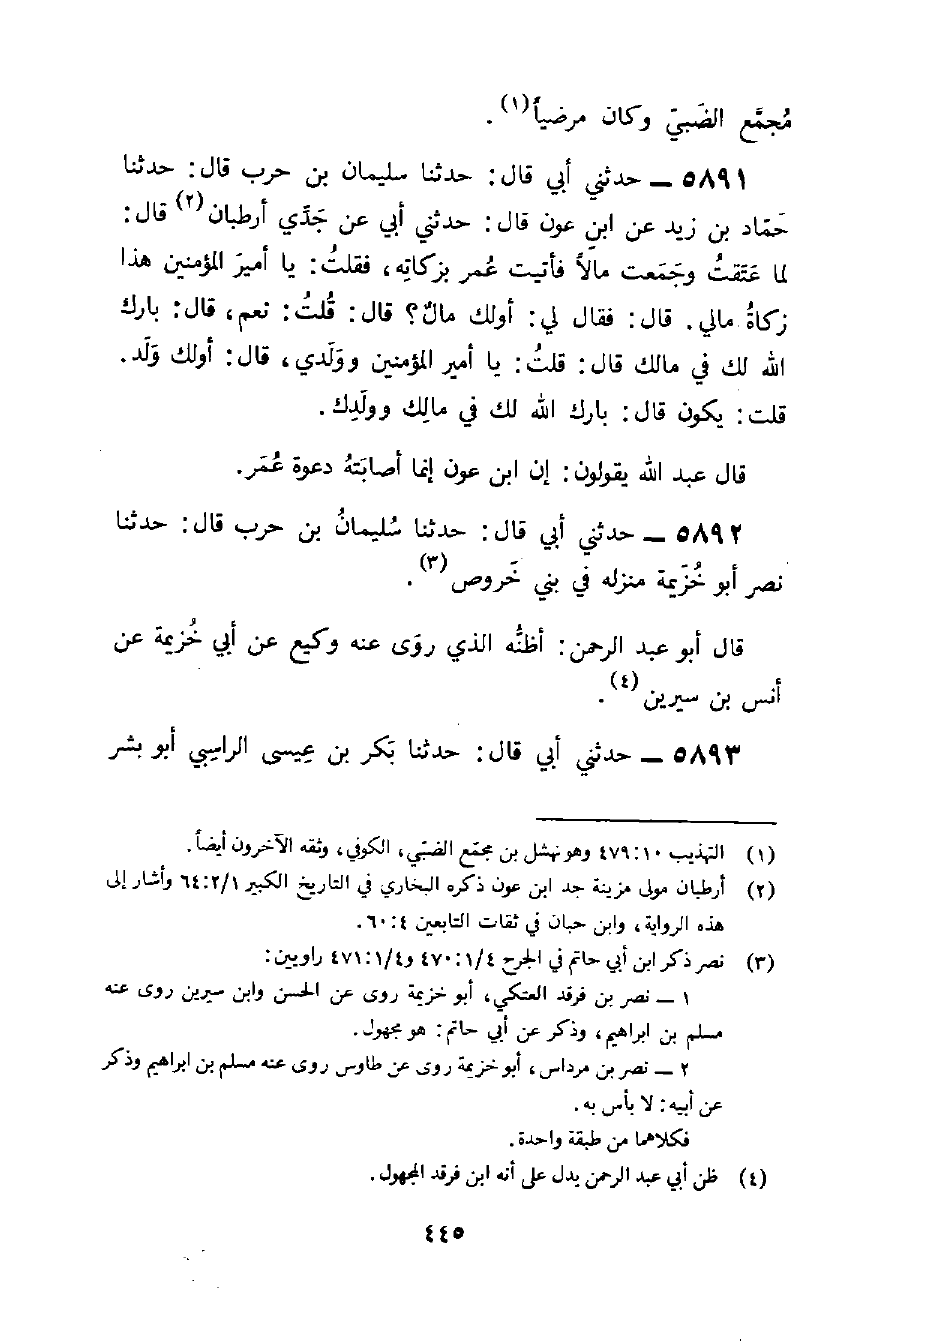 مُجمَّع الضَبيّ وكان مرضياً(١) .
٥٨٩١ ــ حدثني أبي قال : حدثنا سليمان بن حرب قال : حدثنا
حَمّاد بن زيد عن ابن عون قال : حدثني أبي عن جَدّي أرطبان(٢) قال :
لما عَتَقتُ وجَمَعت مالاً فأتيت عُمر بزكاتِه ، فقلتُ : يا أميرَ المؤمنين هذا
زكاةُ مالي . قال : فقال لي : أولك مالٌ ؟ قال : قُلتُ : نعم ، قال : بارك
الله لك في مالك قال : قلتُ : يا أمير المؤمنين ووَلَدي ، قال : أولك وَلَد .
قلت : يكون قال : بارك الله لك في مالِك وولَدِك .
قال عبد الله يقولون : إن ابن عون إنما أصابَتهُ دعوة عُمَر .
٥٨٩٢ ــ حدثني أبي قال : حدثنا سُليمانُ بن حرب قال : حدثنا
نصر أبو خُزَيمة منزله في بني خَروص(٣) .
قال أبو عبد الرحمن : أظنُّه الذي روَى عنه وكيع عن أبي خُزيمة عن
أنس بن سيرين(٤) .
٥٨٩٣ ــ حدثني أبي قال : حدثنا بَكر بن عِيسى الراسِبي أبو بشر
(١) التهذيب ١٠ : ٤٧٩ وهو نهشل بن مجمّع الضبّي ، الكوفي ، وثقه الآخرون أيضاً .
(٢) أرطبان مولى مزينة جد ابن عون ذكره البخاري في التاريخ الكبير ٢/١ : ٦٤ وأشار إلى
هذه الرواية ، وابن حبان في ثقات التابعين ٤ : ٦٠ .
(٣) نصر ذكر ابن أبي حاتم في الجرح ١/٤ : ٤٧٠ و١/٤ : ٤٧١ راويين :
١ ــ نصر بن فرقد العتكي ، أبو خزيمة روى عن الحسن وابن سيرين روى عنه
مسلم بن ابراهيم ، وذكر عن أبي حاتم : هو مجهول .
٢ ــ نصر بن مرداس ، أبو خزيمة روى عن طاوس روى عنه مسلم بن ابراهيم وذكر
عن أبيه : لا بأس به .
فكلاهما من طبقة واحدة .
(٤) ظن أبي عبد الرحمن يدل على أنه ابن فرقد المجهول .
٤٤٥